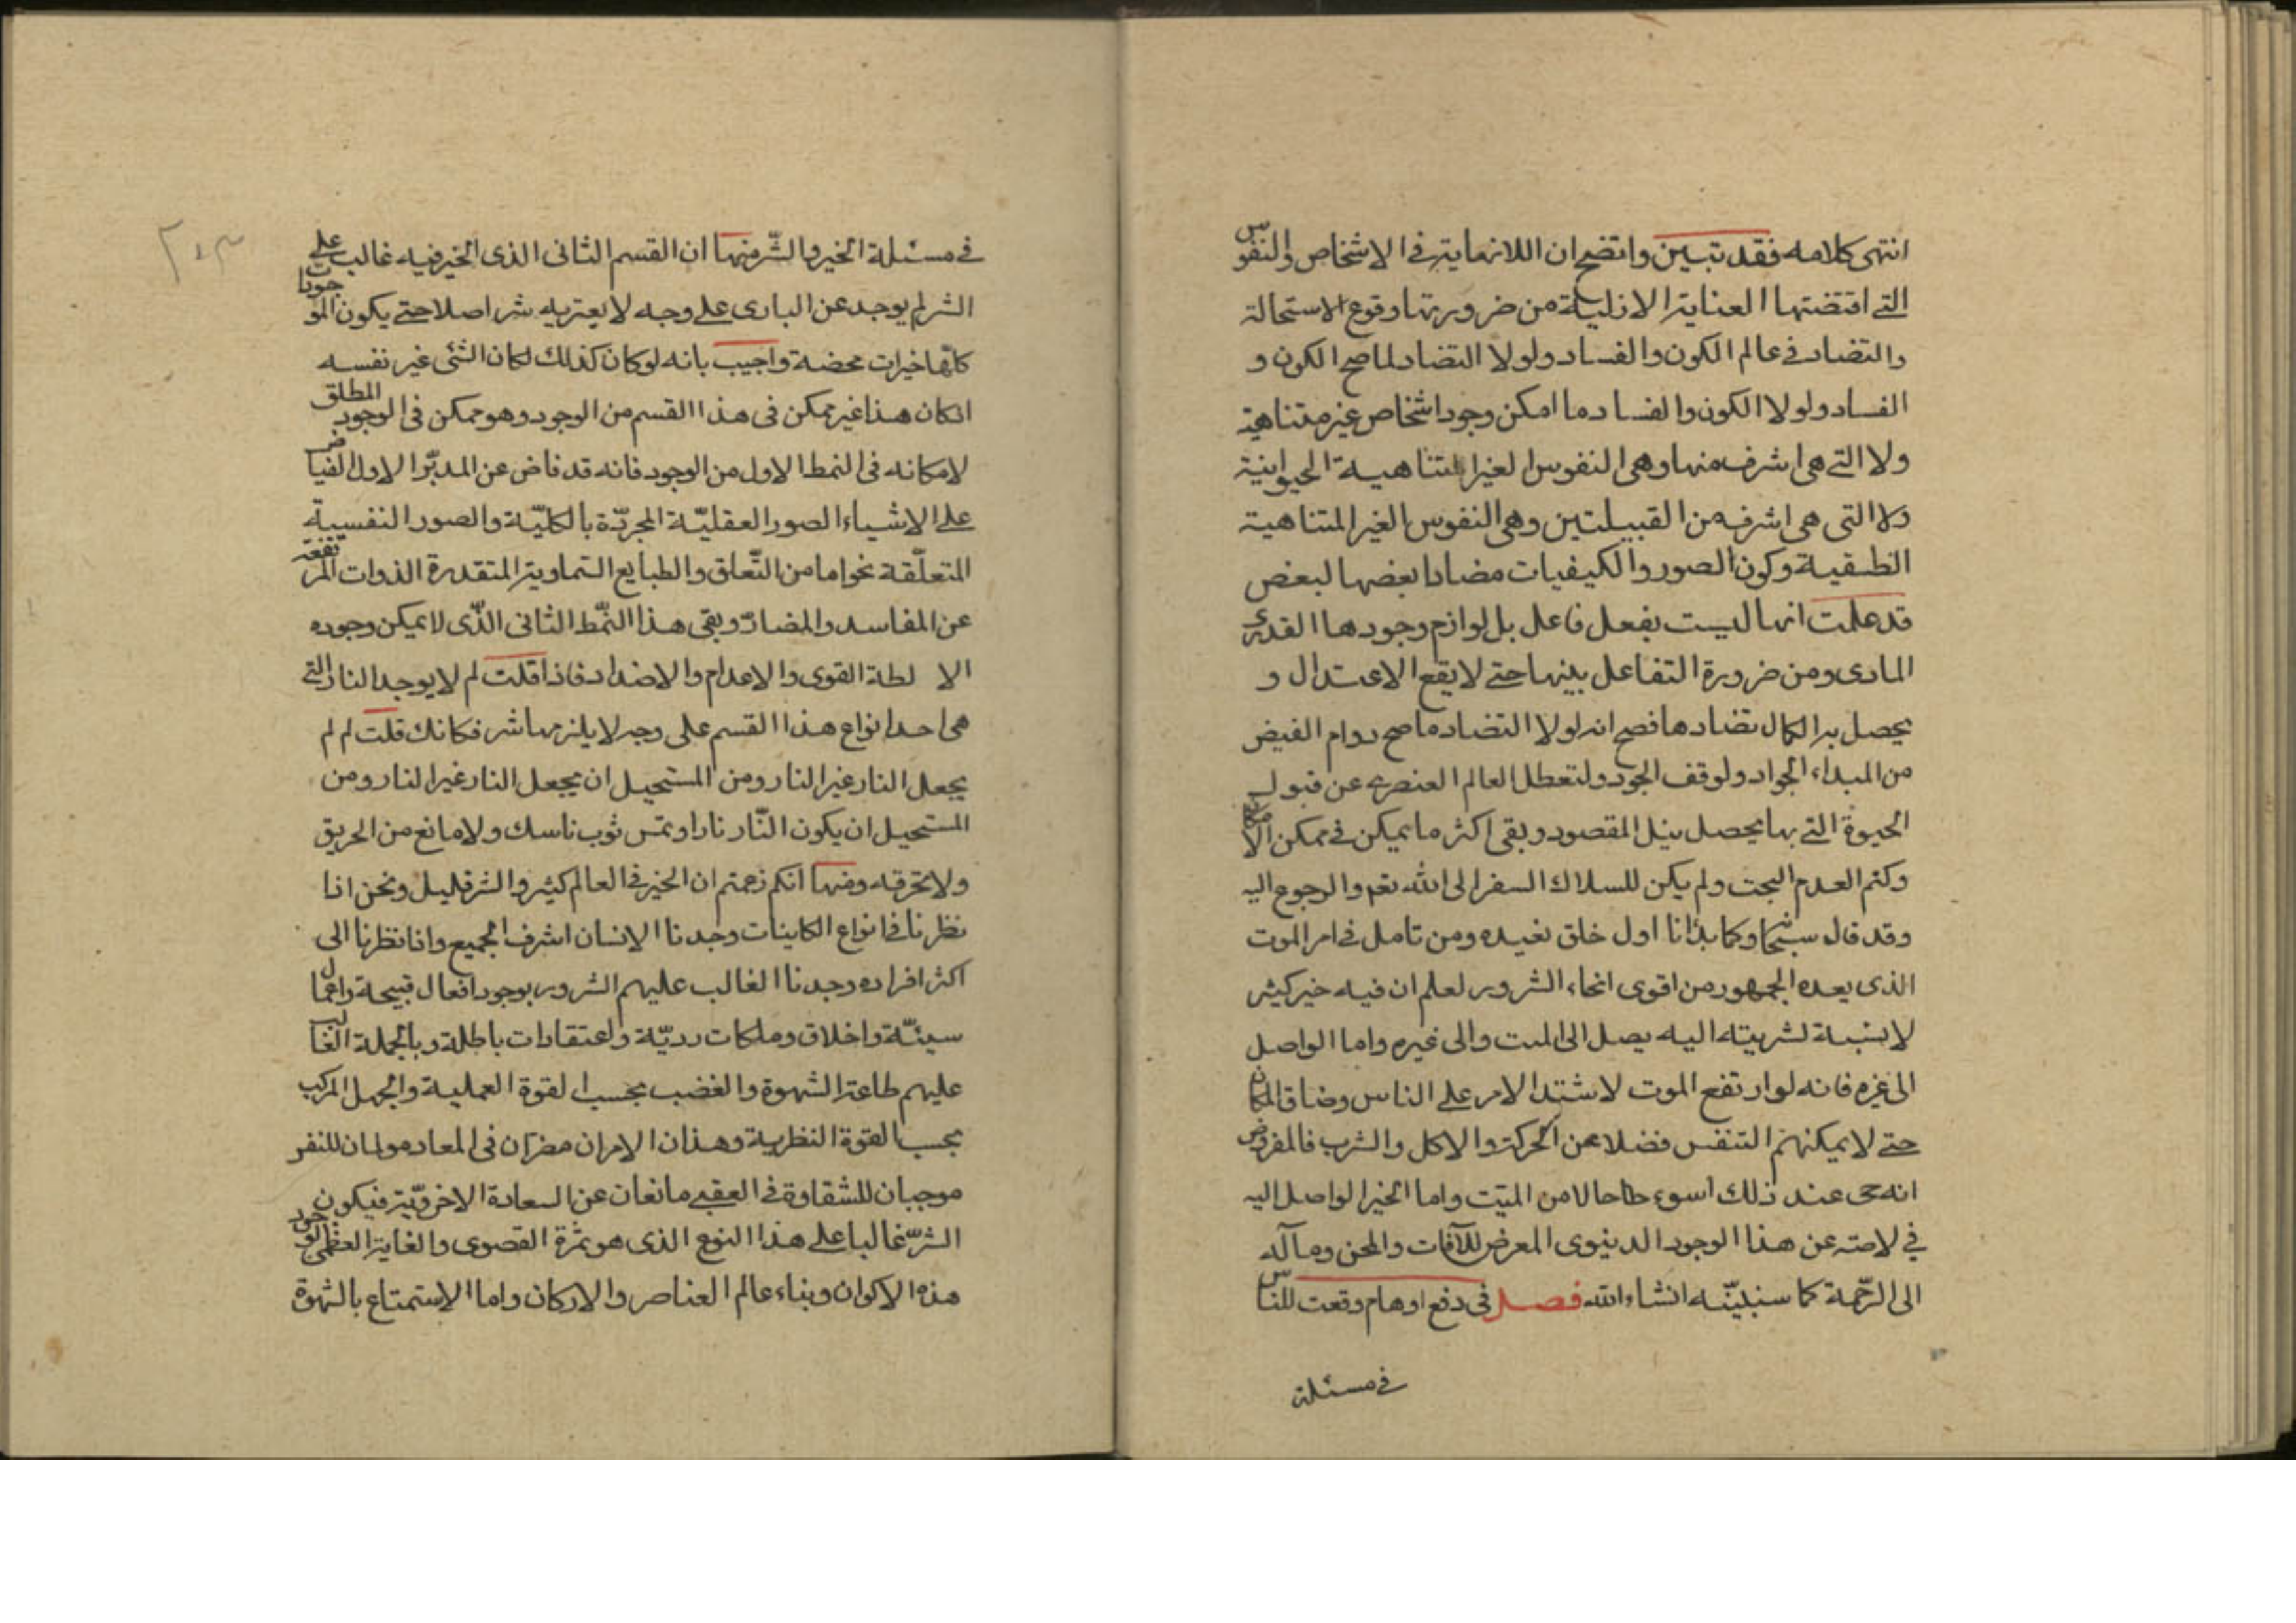 انتهى كلامه فقد تبين واتضح ان اللانهاية في الاشخاص والنفوس
التى اقتضتها العناية الازلية من ضرورتها وقوع الاستحالة
والتضاد في عالم الكون والفساد ولولا التضاد لما صح الكون و
الفساد ولولا الكون والفساد ما امكن وجود اشخاص غير متناهية
ولا التى هى اشرف منها وهى النفوس الغير المتناهية الحيوانية
ولا التى هى اشرف من القبيلتين وهى النفوس الغير المتناهية
النطقية وكون الصور والكيفيات مضادا بعضها لبعض
قد علمت انها ليست بفعل فاعل بل لوازم وجودها القدرى
المادى ومن ضرورة التفاعل بينها حتى لا يقع الاعتدال و
يحصل به الكمال تضادها فصح انه لولا التضاد ما صح دوام الفيض
من المبداء الجواد ولوقف الجود ولتعطل العالم العنصرى عن قبول
الحيوة التى بها يحصل نيل المقصود وبقى اكثر ما يمكن في ممكن الامكان
وكتم العدم البحت ولم يكن للسلاك السفر الى الله تعم والرجوع اليه
وقد قال سبحا وكما بدانا اول خلق نعيده ومن تامل في امر الموت
الذى يعده الجمهور من اقوى انحاء الشرور لعلم ان فيه خير كثير
لا نسبة لشريته اليه يصل الى الميت والى غيره واما الواصل
الى غيره فانه لو ارتفع الموت لاشتد الامر على الناس وضاق المكان
حتى لا يمكنهم التنفس فضلا عن الحركة والاكل والشرب فالمفروض
انه حى عند ذلك اسوء حالا من الميت واما الخير الواصل اليه
في لامته عن هذا الوجود الدنيوى المعرض للآفات والمحن ومآله
الى الرّحمة كما سنبيّنه انشاء الله فصل في دفع اوهام وقعت للناس
في مسئلة
في مسئلة الخير والشّر منها ان القسم الثانى الذى الخير فيه غالب على
الشر لم يوجد عن البارى على وجه لا يعتريه شر اصلا حتى يكون الموجودات
كلّها خيرات محضة واجيب بانه لو كان كذلك لكان الشئ غير نفسه
اذ كان هذا غير ممكن في هذا القسم من الوجود وهو ممكن في الوجود المطلق
لامكانه في النمط الاول من الوجود فانه قد فاض عن المدبّر الاول الفياض
على الاشياء الصور العقليّة المجرّدة بالكليّة والصور النفسية
المتعلّقة نحوا ما من التّعلق والطبايع السّماوية المتقدرة الذوات المرتفعة
عن المفاسد والمضارّ وبقى هذا النّمط الثانى الذّى لا يمكن وجوده
الا لطة القوى والاعدام والاضداد فاذا قلت لم لا يوجد النار التى
هى احد انواع هذا القسم على وجه لا يلزمها شر فكانك قلت لم لم
يجعل النار غير النار ومن المستحيل ان يجعل النار غير النار ومن
المستحيل ان يكون النّار نارا وتمس ثوب ناسك ولا مانع من الحريق
ولا تحرقه ومنها انكم زعمتم ان الخير في العالم كثير والشر قليل ونحن اذا
نظرنا في انواع الكاينات وجدنا الانسان اشرف الجميع واذا نظرنا الى
اكثر افراده وجدنا الغالب عليهم الشرور بوجود افعال قبيحة واعمال
سيئّة واخلاق وملكات رديّة واعتقادات باطلة وبالجملة الغالب
عليهم طاعة الشهوة والغضب بحسب القوة العملية والجهل المركب
بحسب القوة النظرية وهذان الامران مضران في المعاد مولمان للنفر
موجبان للشقاوة في العقبى مانعان عن السعادة الاخرويّة فيكون
الشرّ غالبا على هذا النوع الذى هو ثمرة القصوى والغاية العظمى لوجود
هذه الاكوان وبناء عالم العناصر والاركان واما الاستمتاع بالشهوة